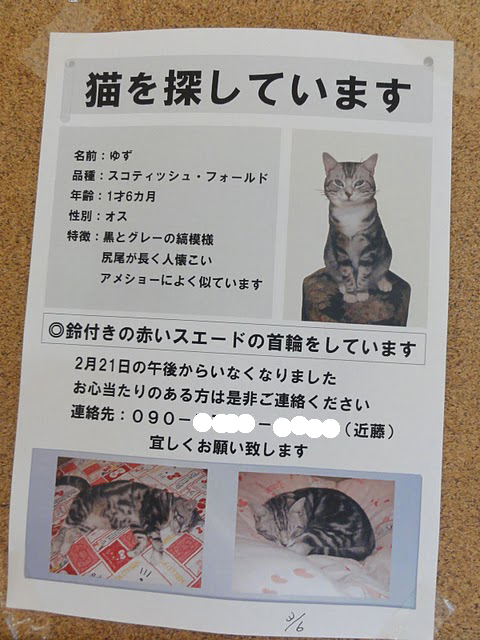 猫を探しています
名前：ゆず
品種：スコティッシュ・フォールド
年齢：1才6カ月
性別：オス
特徴：黒とグレーの縞模様
尻尾が長く人懐こい
アメショーによく似ています
◎鈴付きの赤いスエードの首輪をしています
2月21日の午後からいなくなりました
お心当たりのある方は是非ご連絡ください
連絡先：０９０－ － （近藤）
宜しくお願い致します
3/6